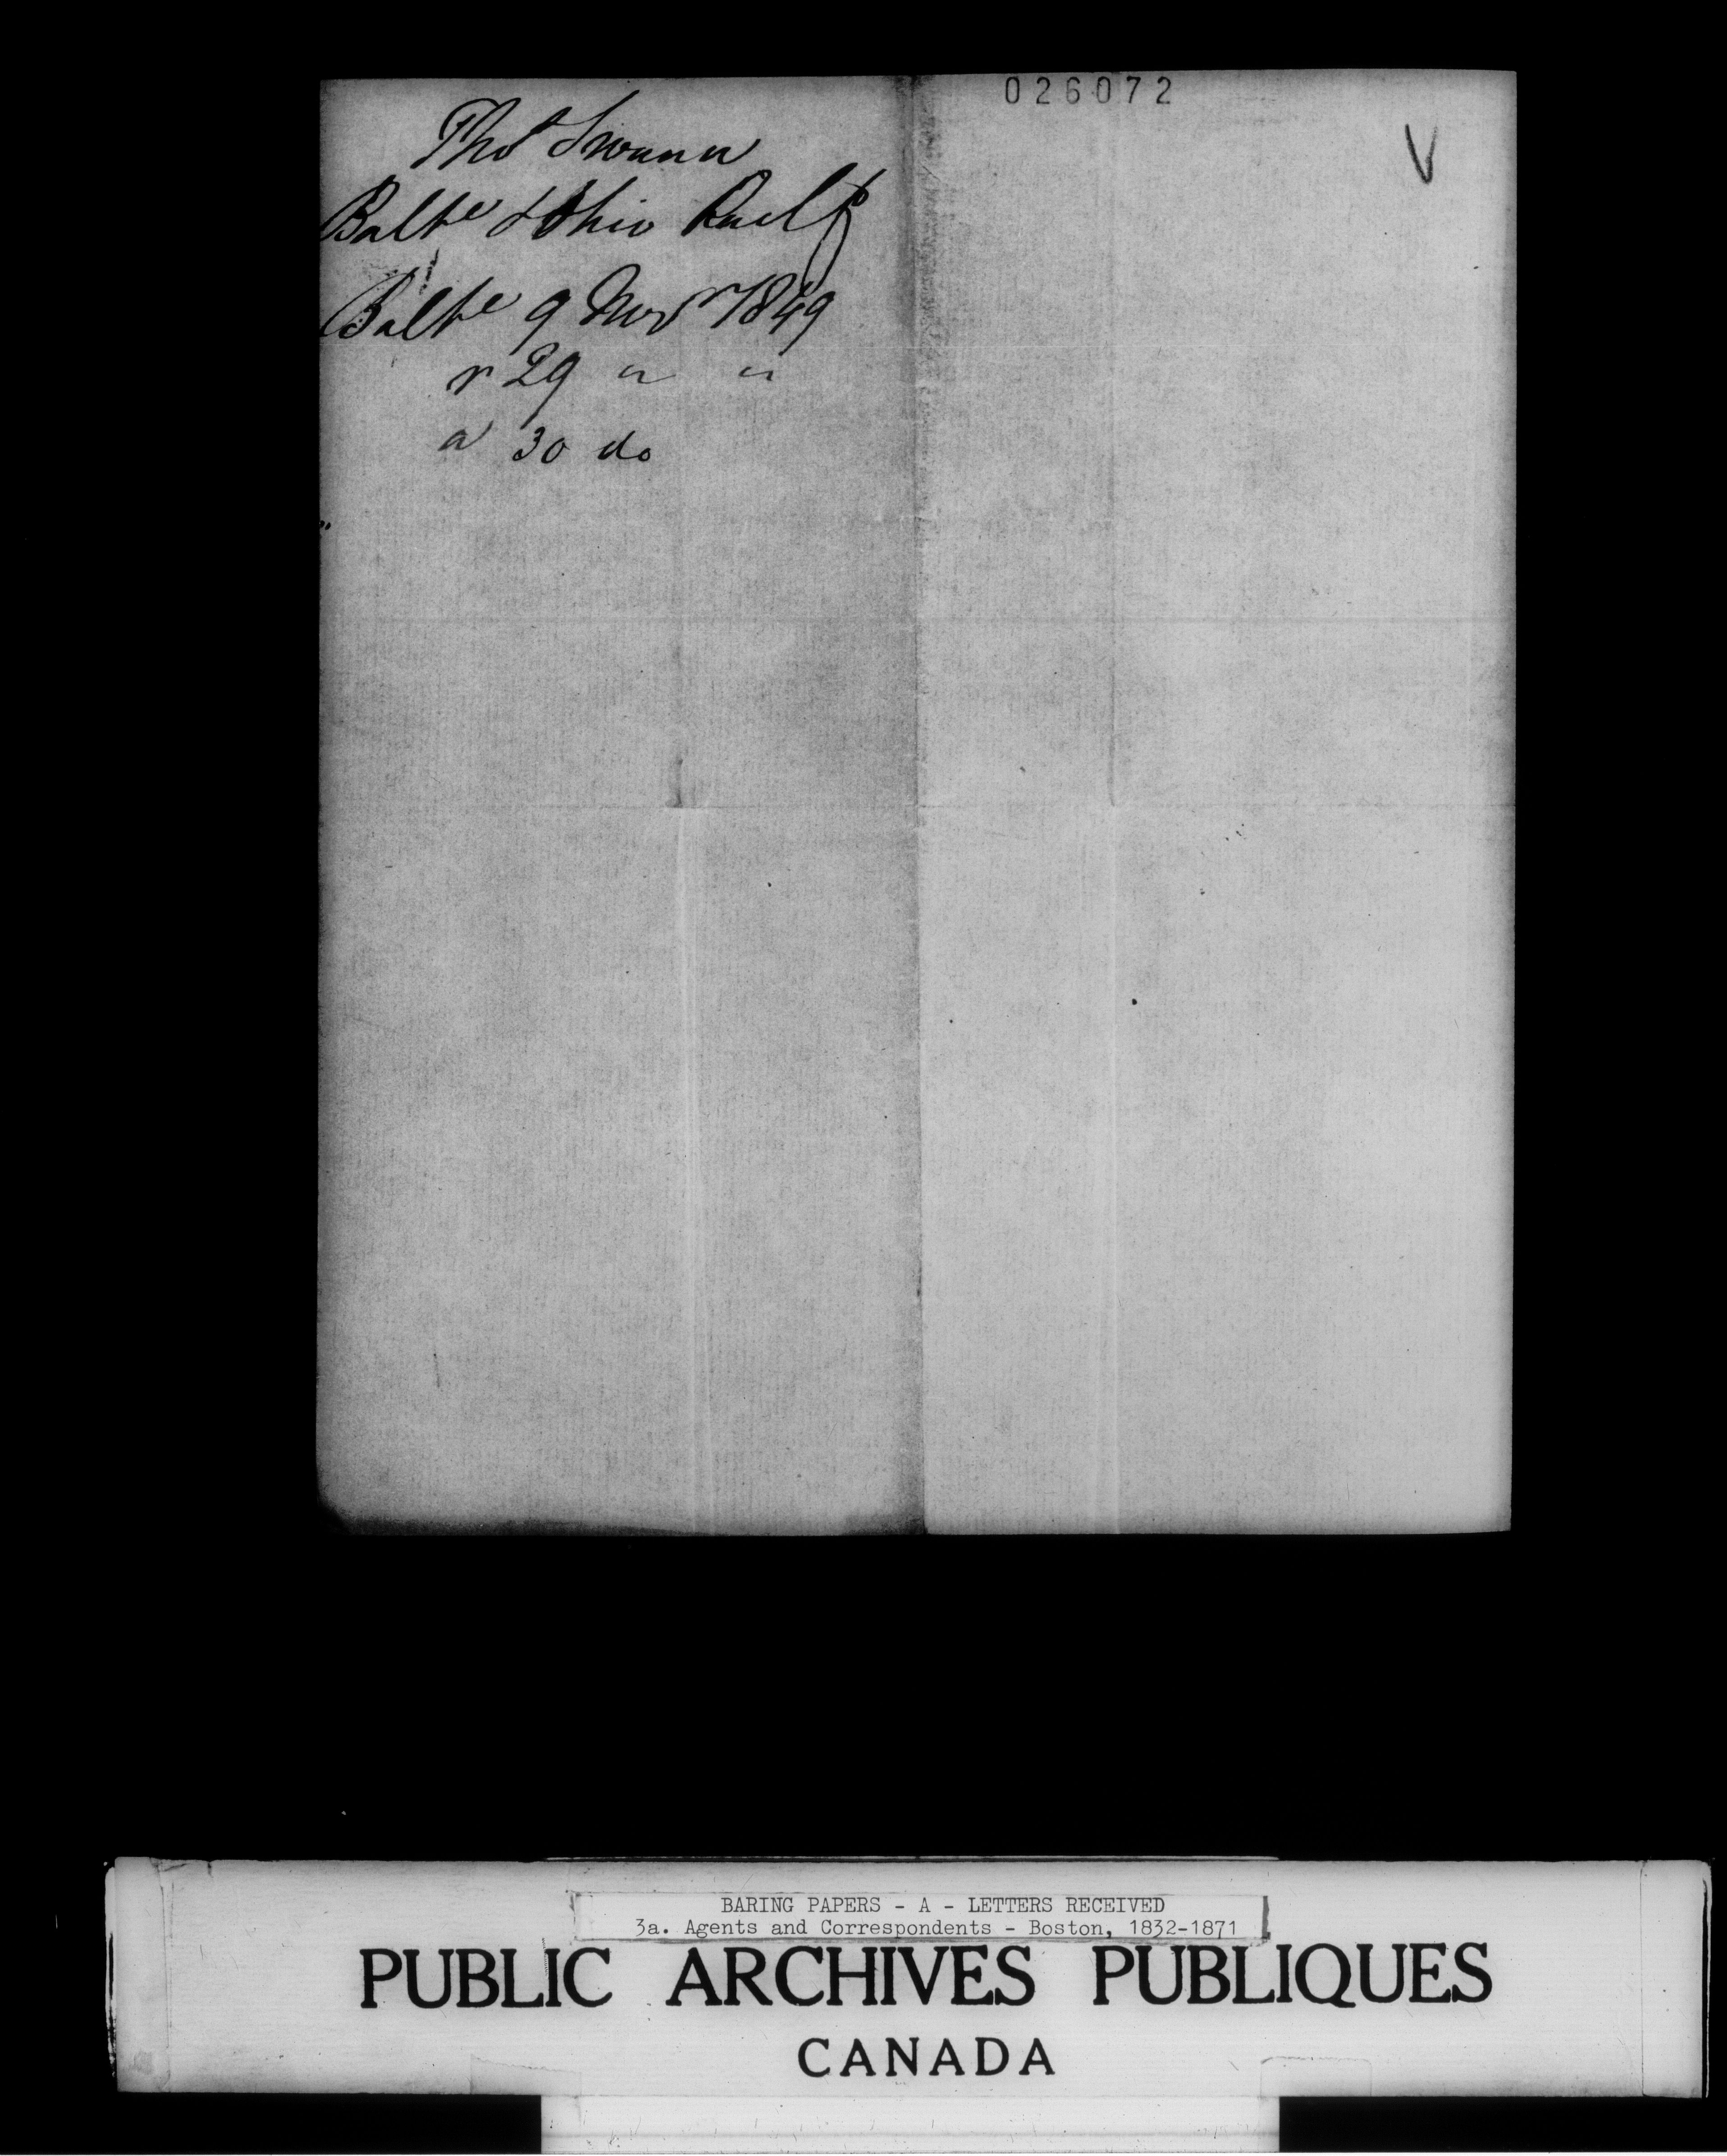 026072
V
Thos Swann
Balte & Ohio Rail
Balte 9 Novr 1849
r 29 " "
a 30 do
BARING PAPERS - A - LETTERS RECEIVED
3a. Agents and Correspondents - Boston, 1832-1871
PUBLIC ARCHIVES PUBLIQUES
CANADA